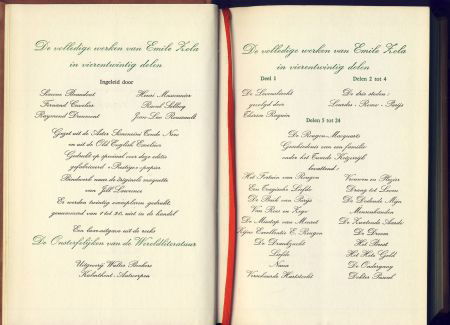 De volledige werken van Emile Zola
in vierentwintig delen
Ingeleid door
Simone Henri
Fernand Raoul
Raymond Jean-Luc
Gezet uit de Aster
en uit de Old English
Gedrukt op speciaal voor deze editie
gefabriceerd papier
Bandwerk naar de originele maquette
van Jill Lawrence
Er werden twintig exemplaren gedrukt,
genummerd van 1 tot 20, niet in de handel
Een luxe-uitgave uit de reeks
De Onsterfelijken van de Wereldliteratuur
Uitgeverij Walter Beckers
Kalmthout-Antwerpen
De volledige werken van Emile Zola
in vierentwintig delen
Deel 1
De Levenslucht
gevolgd door
Thérèse Raquin
Delen 2 tot 4
De drie steden:
Lourdes - Rome - Parijs
Delen 5 tot 24
De Rougon-Macquarts
Geschiedenis van een familie
onder het Tweede Keizerrijk
bevattend:
Het Fortuin van Rougon
Een Tragische Liefde
De Buik van Parijs
Van Roes en Zege
De Misstap van Mouret
Zijne Excellentie E. Rougon
De Drankzucht
Liefde
Nana
Vrouwen en Plezier
Drang tot Leven
De Dodende Mijn
De Dronk
Het Beest
Het Hete Geld
De Ondergang
Dokter Pascal